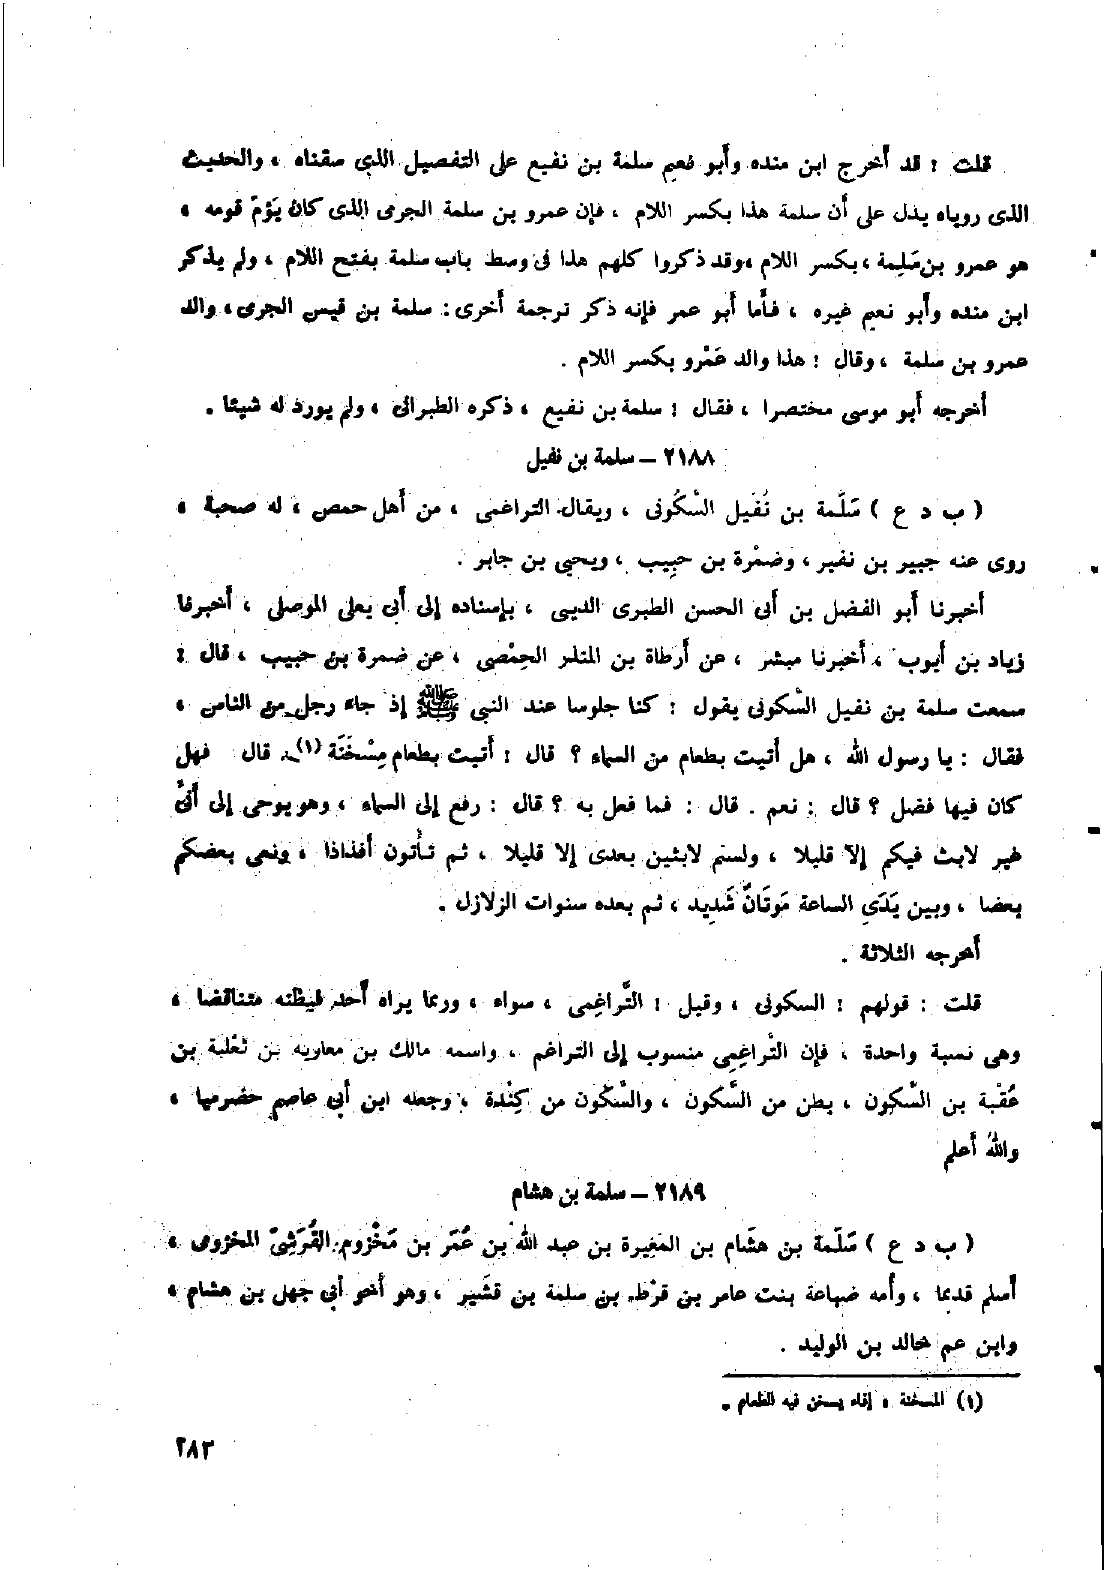 قلت : قد أخرج ابن منده وأبو نعيم سلمة بن نفيع على التفصيل الذى سقناه ، والحديث
الذى رويناه يدل على أن سلمة هذا بكسر اللام ، فإن عمرو بن سلمة الجرمى الذى كان يَؤمّ قومه ،
هو عمرو بن سَلِمة ، بكسر اللام ، وقد ذكروا كلهم هذا فى وسط باب سلمة بفتح اللام ، ولم يذكر
ابن منده وأبو نعيم غيره ، فأما أبو عمر فإنه ذكر ترجمة أخرى : سلمة بن قيس الجرمى ، والد
عمرو بن سلمة ، وقال : هذا والد عَمْرو بكسر اللام .
أخرجه أبو موسى مختصرا ، فقال : سلمة بن نفيع ، ذكره الطبرانى ، ولم يورد له شيئا .
٢١٨٨ – سلمة بن نفيل
( ب د ع ) سَلَمة بن نُفَيل السَّكُونى ، ويقال التراغمى ، من أهل حمص ، له صحبة ،
روى عنه جبير بن نفير ، وضَمْرة بن حبِيب ، ويحيى بن جابر .
أخبرنا أبو الفضل بن أبى الحسن الطبرى الدينى ، بإسناده إلى أبى يعلى الموصلى ، أخبرنا
زياد بن أيوب ، أخبرنا مبشر ، عن أرطاة بن المنذر الحِمْصى ، عن ضمرة بن حبيب ، قال :
سمعت سلمة بن نفيل السَّكونى يقول : كنا جلوسا عند النبى ﷺ إذ جاء رجل من الناس ،
فقال : يا رسول الله ، هل أتيت بطعام من السماء ؟ قال : أتيت بطعام مِسْخَنَة (١) . قال فهل
كان فيها فضل ؟ قال : نعم . قال : فما فعل به ؟ قال : رفع إلى السماء ، وهو يوحى إلى أنىّ
غير لابث فيكم إلا قليلا ، ولستم لابثين بعدى إلا قليلا ، ثم تأتون أفنادا ، ونعى بعضكم
بعضا ، وبين يَدَىِ الساعة مَوتَانٌ شَدِيد ، ثم بعده سنوات الزلازل .
أخرجه الثلاثة .
قلت : قولهم : السكونى ، وقيل : التَّراغِمى ، سواء ، وربما يراه أحد فيظنه متناقضا ،
وهى نسبة واحدة ، فإن التَّراغِمِى منسوب إلى التراغم ، واسمه مالك بن معاوية بن ثعْلبة بن
عُقْبة بن السَّكون ، بطن من السَّكون ، والسَّكون من كِنْدة ، وجعله ابن أبى عاصم حضرميا ،
واللهُ أعلم
٢١٨٩ – سلمة بن هشام
( ب د ع ) سَلَمة بن هشَام بن المغِيرة بن عبد الله بن عُمَر بن مَخْزوم القُرَشِىّ المخزومى ،
أسلم قديما ، وأمه ضباعة بنت عامر بن قرْط بن سلمة بن قشَير ، وهو أخو أبى جهل بن هشام ،
وابن عم خالد بن الوليد .
(١) المسخنة ، إناء يسخن فيه الطعام .
٢٨٣